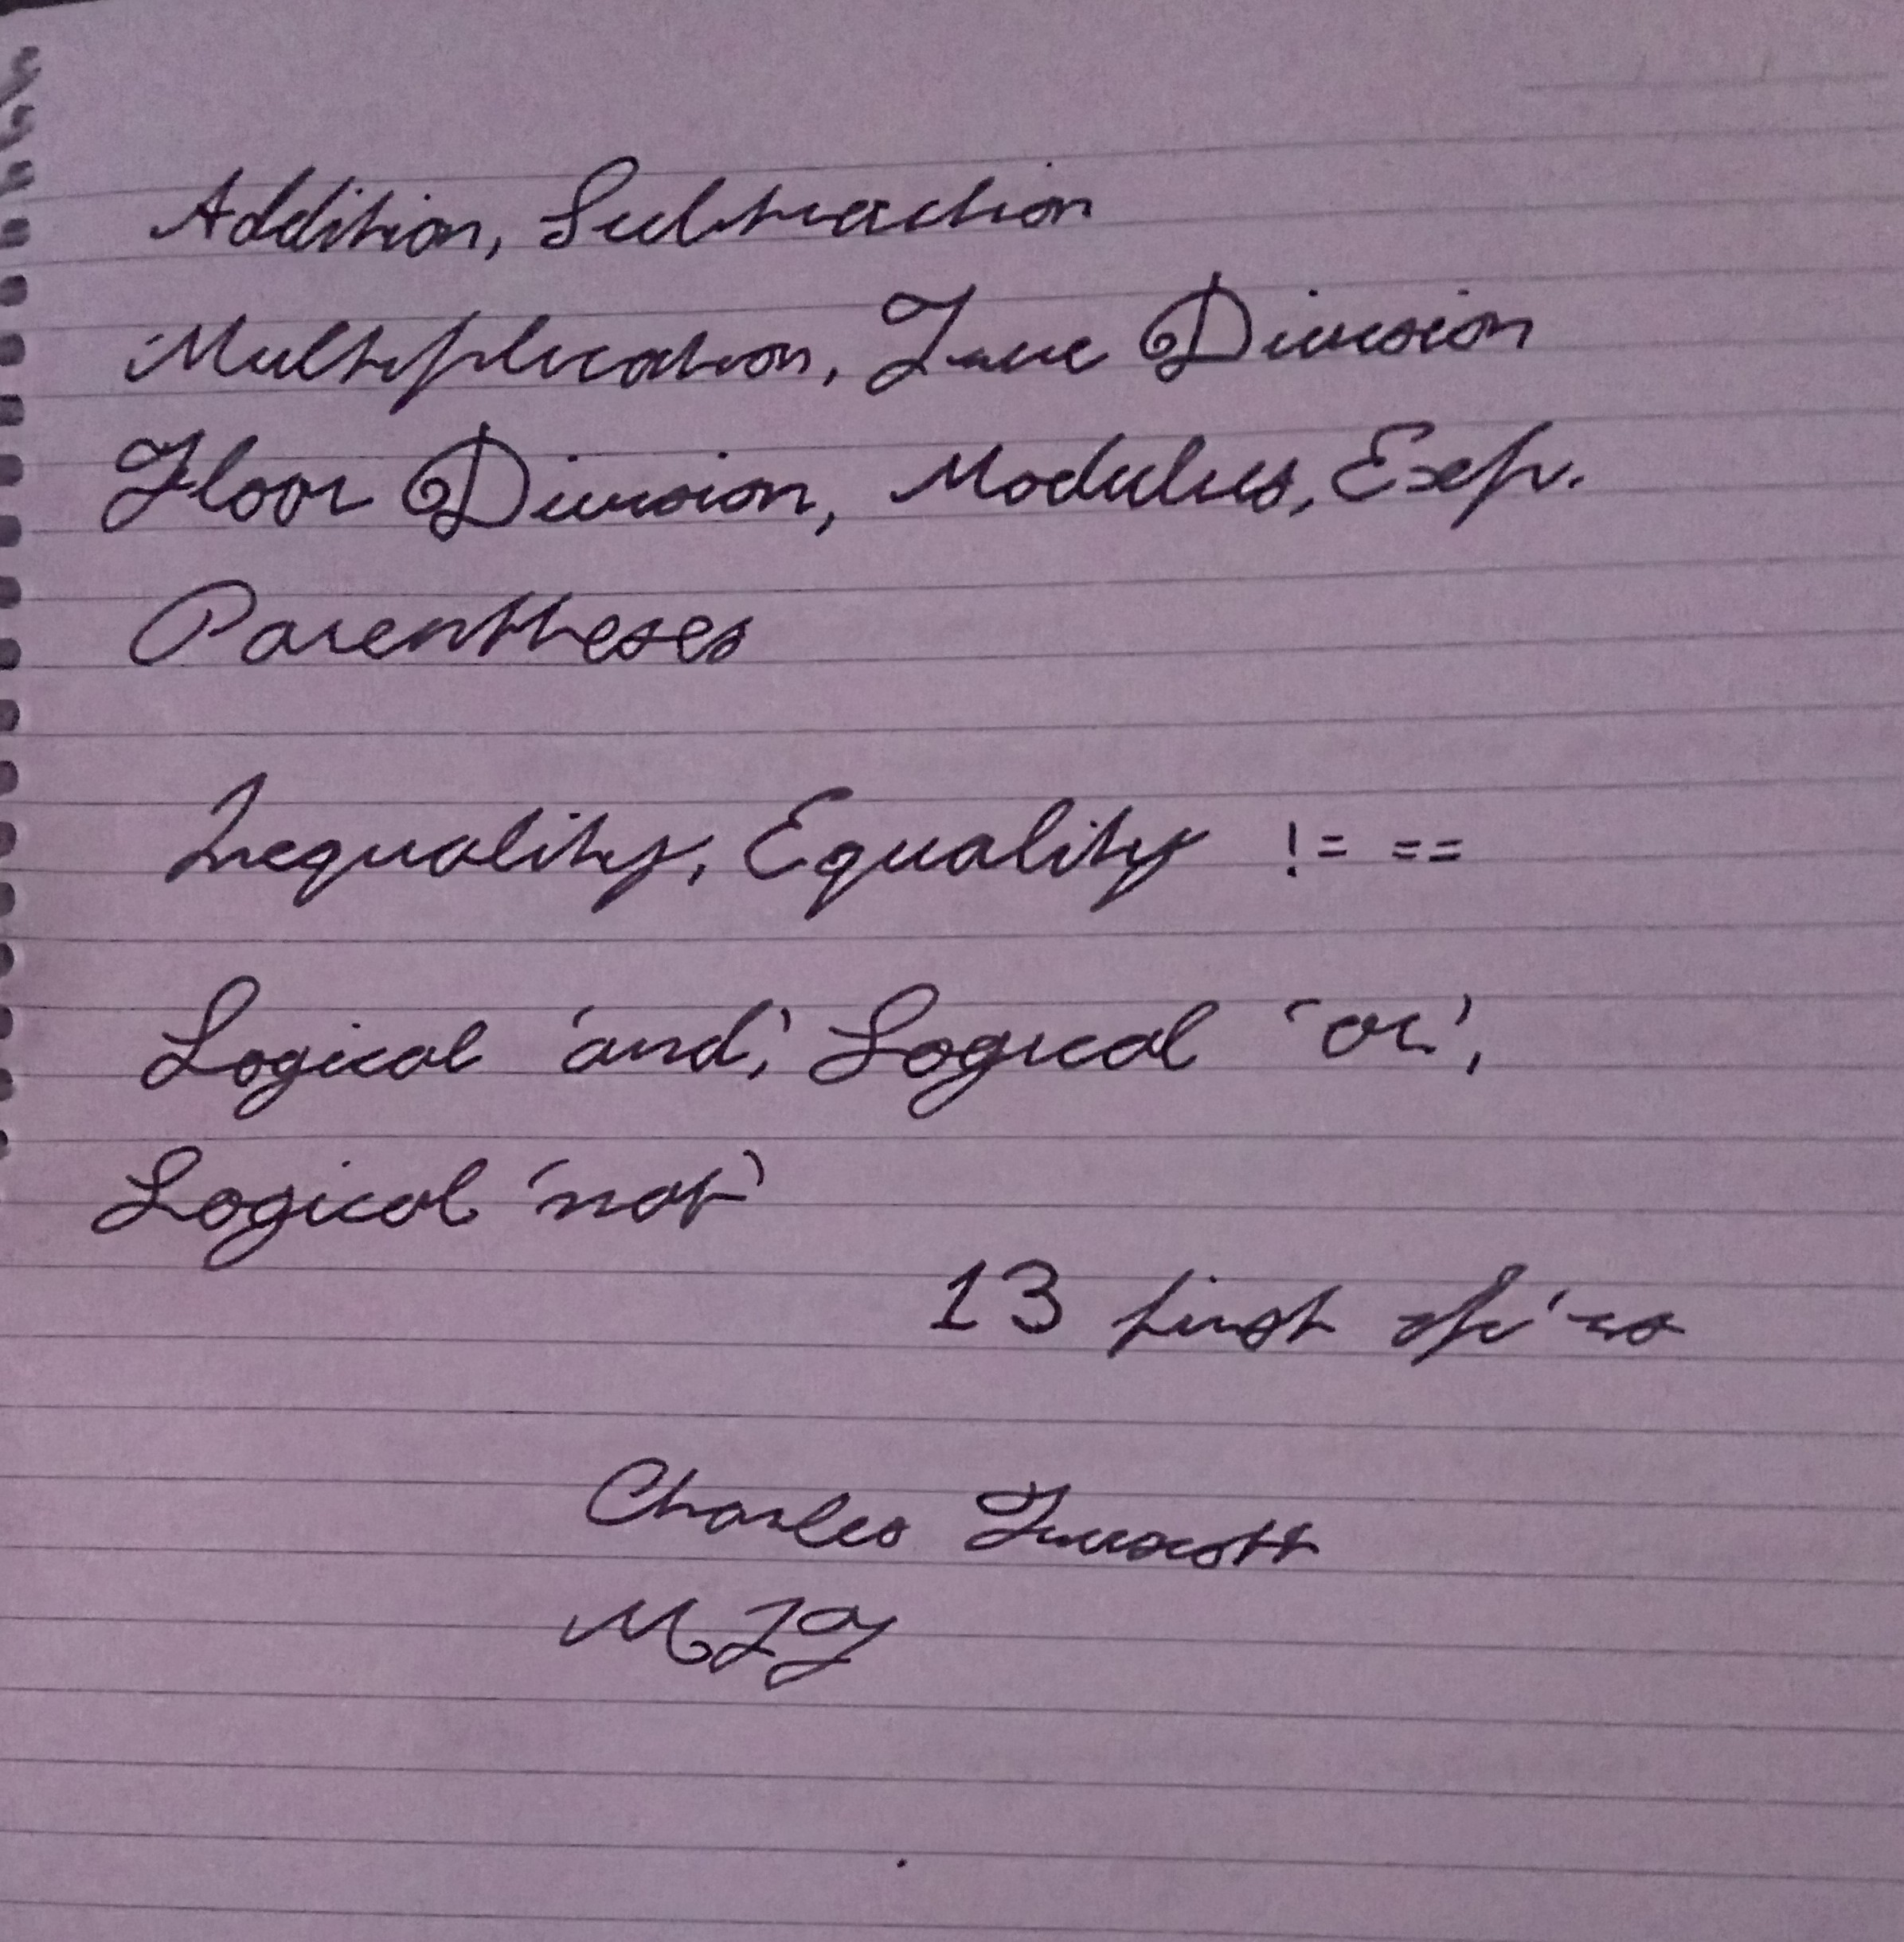 Addition, Subtraction
Multiplication, True Division
Floor Division, Modulus, Exp.
Parentheses
Inequality, Equality != ==
Logical 'and', Logical 'or',
Logical 'not'
13 first op'rs
Charles Truscott
MJT